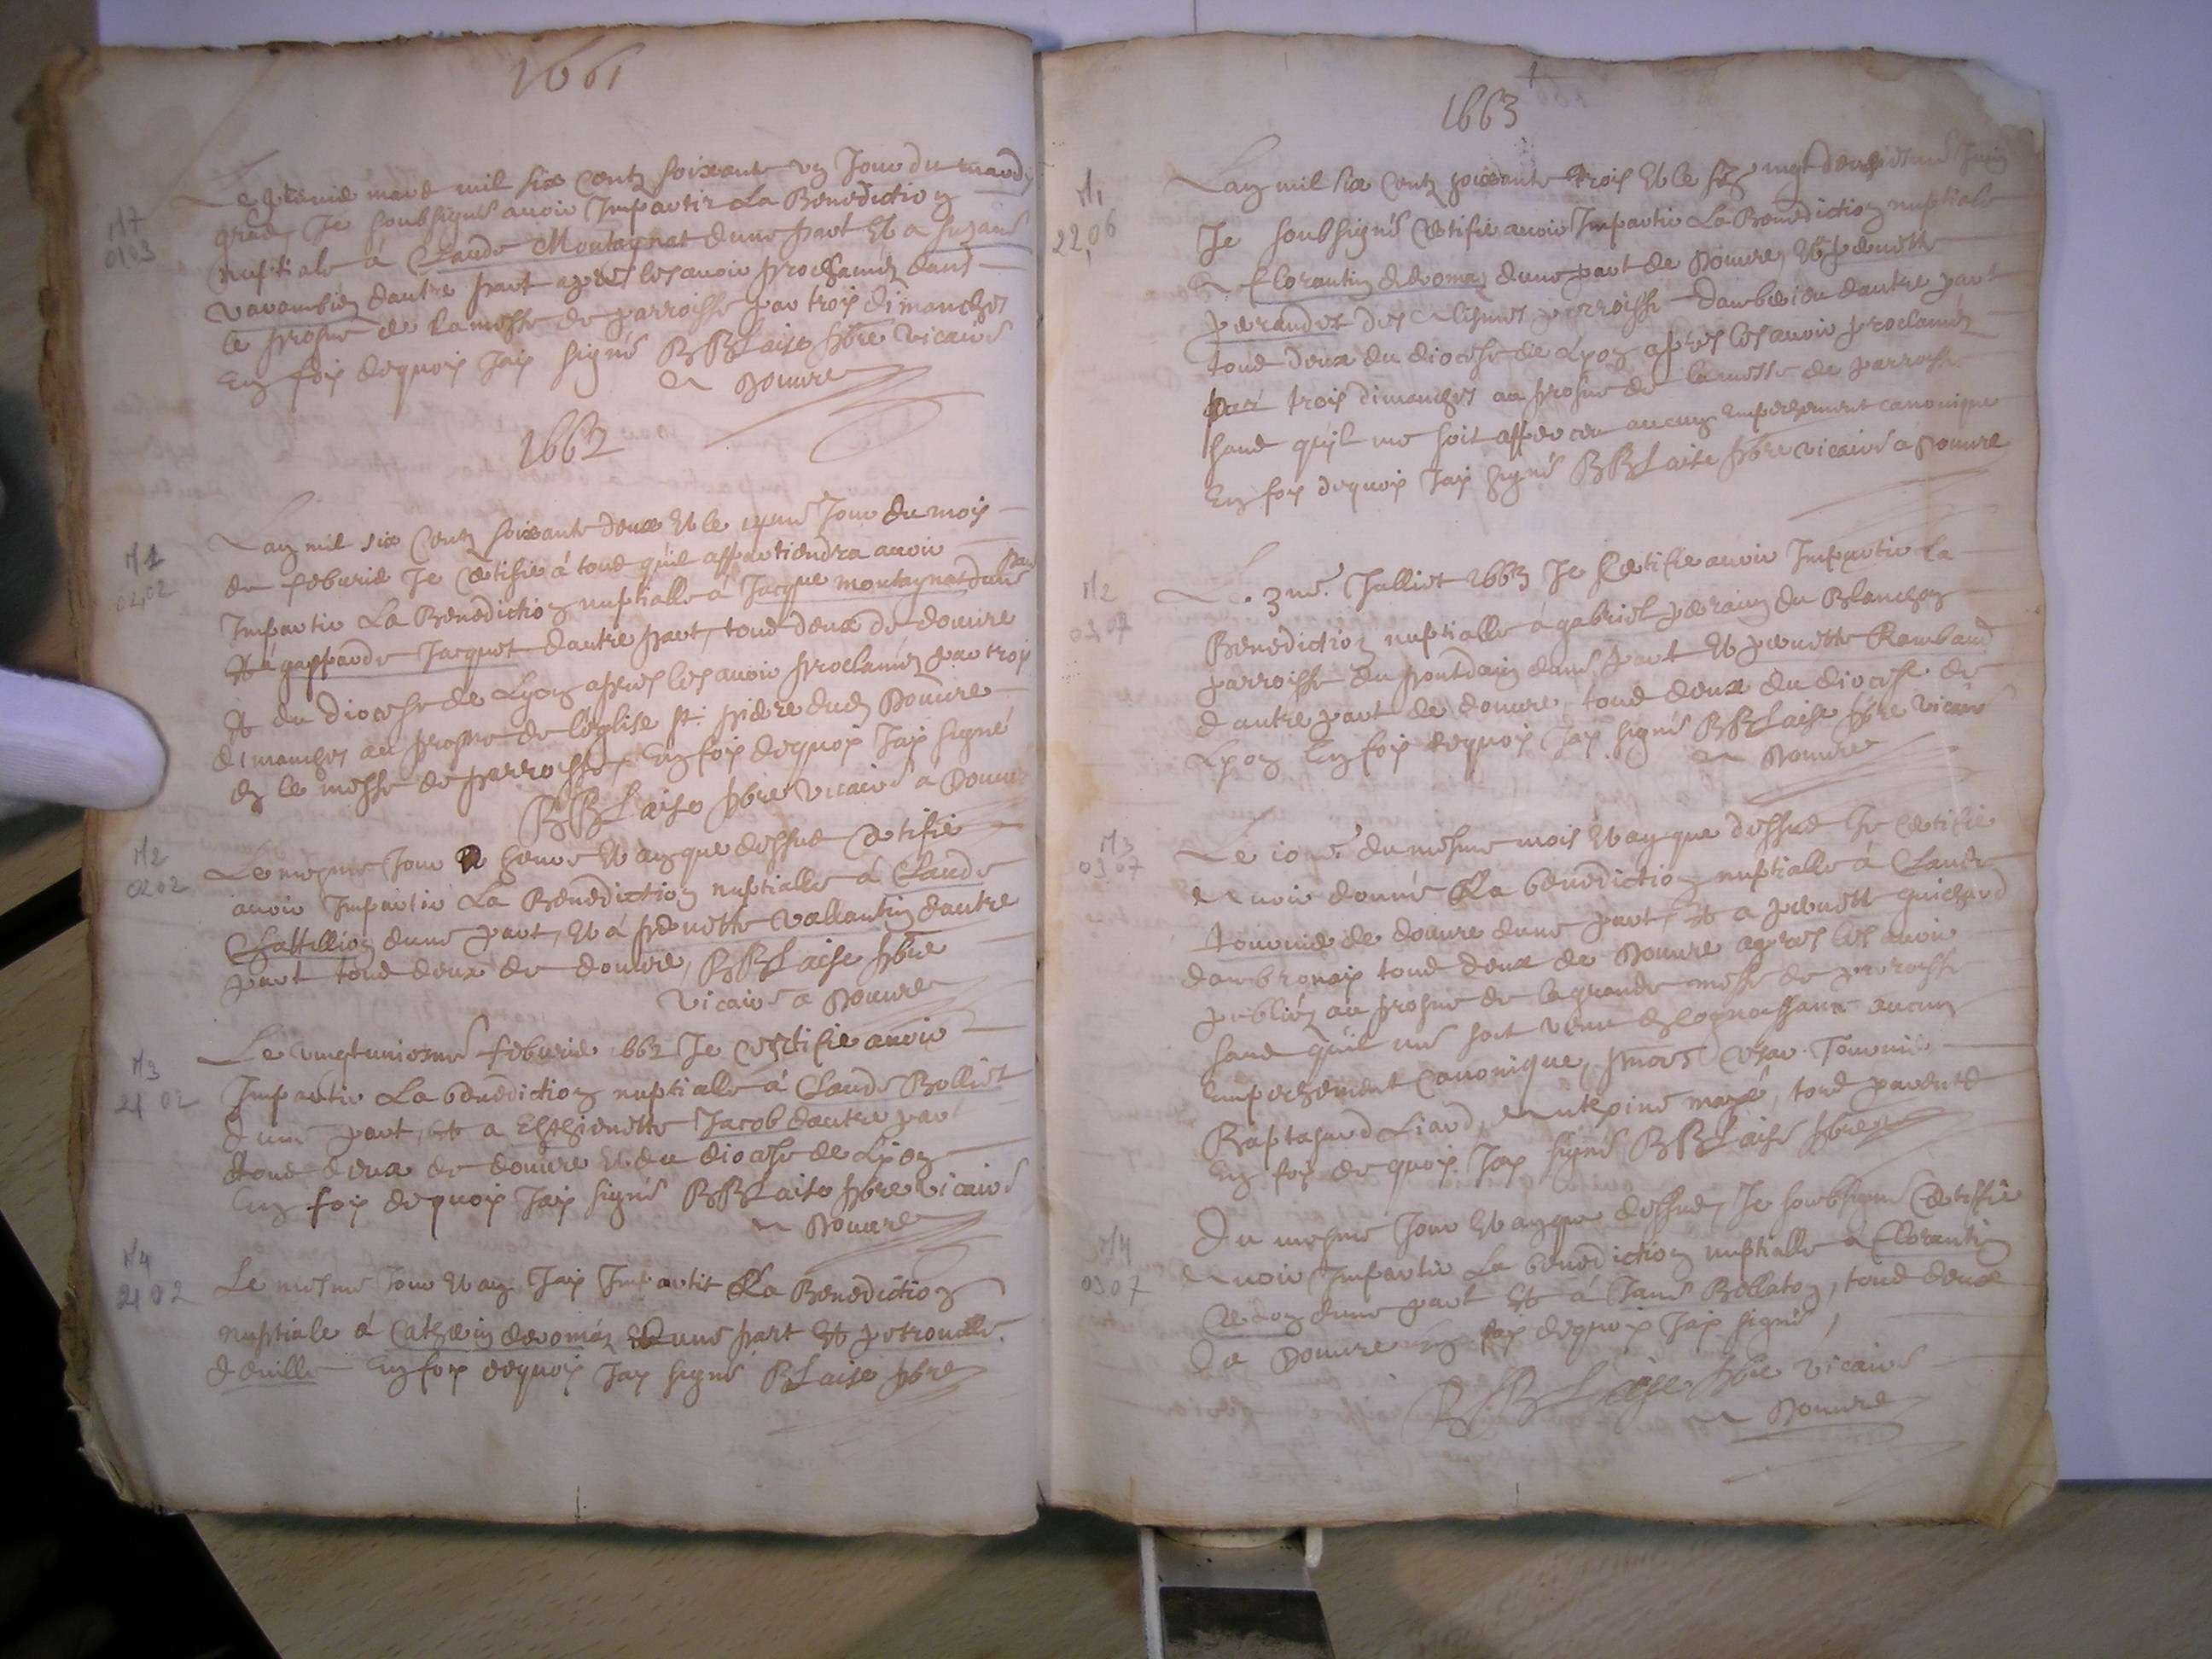 1661
M7
01,03
Le premie mars mil six centz soixante un Jour du mardy
gras, Je soubsigné avoir Impartir La Benediction
nuptiale à Claude Montagnat dune part Et a Suzane
Varambien dautre part apres les avoir proclamez dans
le prosne de la messe de parroisse par trois dimanches
En foy dequoy Jay signé BBLaise pbre vicaire
a Douvre
1662
M1
02,02
Lan mil six centz soixante deux Et le Jour du mois
de febvrie Je certifie à tous quil appartiendra avoir
Impartir La Benediction nuptialle à Jacque montagnat dune part
Et à gasparde Jacquet dautre part, tous deux de douvre
Et du diocese de Lyon apres les avoir proclamez par troys
dimanches au prosne de leglise St: pierre dud Douvre
en le messe de parroisse, En foy dequoy Jay signé
BBLaise pbre vicaire a Douvre
M2
0202
Le mesme Jour heure Et an que dessus certifie
avoir Impartir La Benediction nuptialle à Claude
Chattillion dune part, Et à pernette Vallantin dautre
part tous deux de douvre, BBLaise pbre
vicaire a Douvre
M3
21 02
Le vingtuniesme febvrie 1662 Je certifie avoir
Impartir La benediction nuptialle à Claude Bolliet
dune part, Et a Esthienette Jacob dautre part
tous deux de douvre Et du diocese de Lyon
En foy dequoy Jay signé BBLaise pbre vicaire
a Douvre
M4
2102
Le mesme Jour Et an Jay Impartit La Benediction
nuptiale à Catherin deroman dune part Et petronille
deville En foy dequoy Jay signé BLaise pbre
1663
M1
22,06
Lan mil six centz soixante trois Et le vingt deuxiesme Juin
Je soubsigné Certifie avoir Impartir La Benediction nuptiale
a florantin deroman dune part de Douvre, Et pernette
peraudet des parroisse dambrieu dautre part
tous deux du diocese de Lyon apres les avoir proclamez
par trois dimanches au prosne de la messe de parroisse
sans quil me soit apparceu aucung Empechement canonique
En foy dequoy Jay signé BBLaise pbre vicaire a Douvre
M2
0307
Le 3me. Julliet 1663 Je Certifie avoir Impartir La
Benediction nuptialle à gabriel perain du Blanchon
parroisse du pontdain dune part Et pernette Rambaud
dautre part de douvre, tous deux du diocese de
Lyon En foy dequoy Jay signé BBLaise pbre vicaire
a Douvre
M3
0307
Le 10me. du mesme mois Et an que dessus Je certifie
avoir donné La benediction nuptialle à Claude
tournie de douvre dune part, Et a pernette guichard
dambronay tous deux de Douvre apres les avoir
publiéz au prosne de la grande messe de parroisse
sans quil me soit venu en cognoissance aucun
Empechement Canonique, Tournie
Liard, tous parents
En foy de quoy Jay signé BBLaise pbre
M4
0307
Du mesme Jour Et an que dessus, Je soubsigné Certiffie
avoir Impartir La benediction nuptialle a florantin
dune part Et à Jane Bellaton, tous deux
de Douvre En foy dequoy Jay signé,
BBLaise pbre vicaire
a Douvre